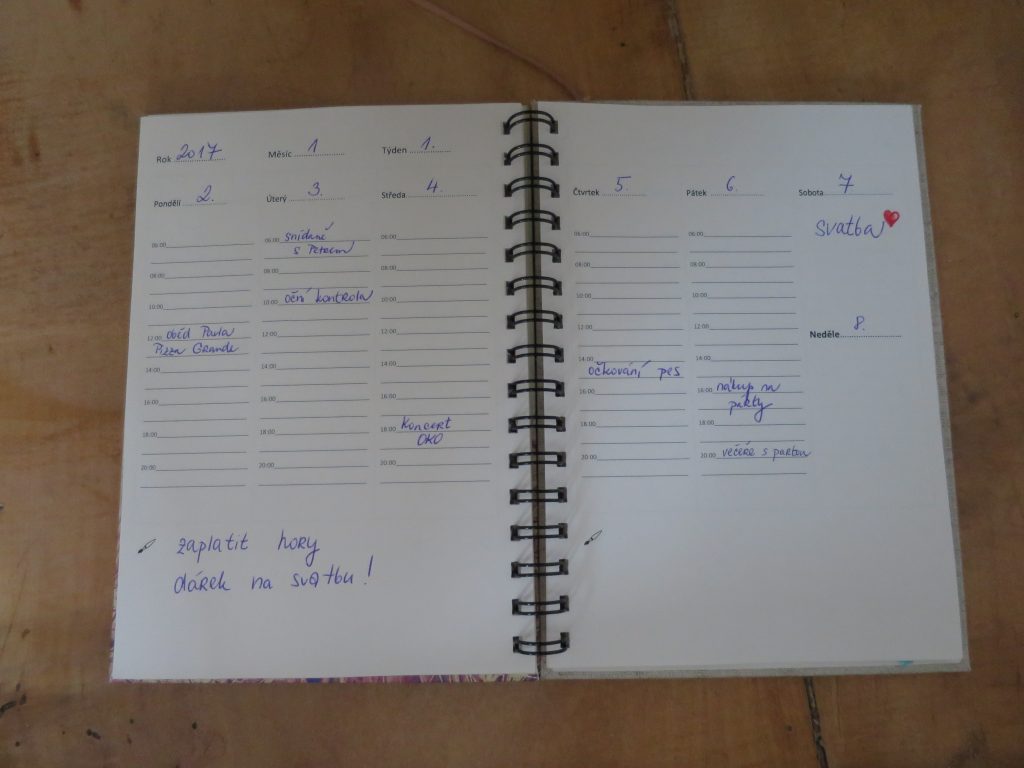 Rok 2017 Měsíc 1 Týden 1.
Pondělí 2. Úterý 3. Středa 4.
06:00
08:00
10:00
12:00 oběd Pavla
Pizza Grande
14:00
16:00
18:00
20:00
06:00 snídaně
s Petrem
08:00
10:00 oční kontrola
12:00
14:00
16:00
18:00
20:00
06:00
08:00
10:00
12:00
14:00
16:00
18:00 Koncert
OKO
20:00
zaplatit hory
dárek na svatbu!
Čtvrtek 5. Pátek 6. Sobota 7
06:00
08:00
10:00
12:00
14:00
očkování pes
16:00
18:00
20:00
06:00
08:00
10:00
12:00
14:00
16:00 nákup na
párty
18:00
20:00 večeře s partou
svatba
Neděle 8.